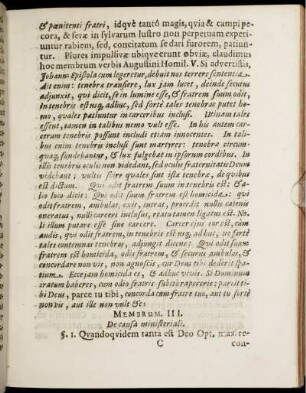 & pœnitenti fratri, idqve tantò magis, qvia & campi pe-
cora, & feræ in sylvarum lustro non perpetuam experi-
untur rabiem, sed, concitatum se dari furorem, patiun-
tur. Plures impulsivæ ubiqve erunt obviæ, claudimus
hoc membrum verbis Augustini Homil. V. Si advertistis,
Johannis Epistola cum legeretur, debuit nos terrere sententia.
Ait enim: tenebræ transiere, lux jam lucet, deinde secutus
adjunxit, qvi dicit, se in lumine esse, & fratrem suum odit,
in tenebris est usq, adhuc, sed fortè tales tenebras putet ho-
mo, quales patiuntur in carceribus inclusi. Utinam tales
essent, tamen in talibus nemo vult esse. In his autem car-
cerum tenebris possunt includi etiam innocentes. In tali-
bus enim tenebris inclusi sunt martyres: tenebræ circum-
quaq, fundebantur, & lux fulgebat in ipsorum cordibus. In
illis tenebris oculis non videbant, sed oculis fraternitatis Deum
videbant: vultis scire quales sint istæ tenebræ, de quibus
est dictum. Qui odit fratrem suum in tenebris est: & a-
lio loco dicit: Qui odit suum fratrem est homicida: qui
odit fratrem, ambulat, exit, intrat, procedit nullis catenis
oneratus, nulli carceri inclusus, reatu tamen ligatus est. No-
li illum putare esse sine carcere. Carcer ejus cor est, cum
audis: qui odit fratrem, in tenebris est usq, adhuc, ne fortè
tales contemnas tenebras, adjungit dicens: Qui odit suum
fratrem est homicida, odis fratrem, & securus ambulas, &
concordare non vis, non agnoscis, cur Deus tibi dederit spa-
tium. Ecce jam homicida es, & adhuc vivis: Si Dominum
iratum haberes, cum odio fratris subitò rapereris: parcit ti-
bi Deus, parce tu tibi, concorda cum fratre tuo, aut tu fortè
non vis, aut ille non vult &c.
MEMBRUM. III.
De causa ministeriali.
§. 1. Qvandoqvidem tanta est Deo Opt. max. re-
C
con-